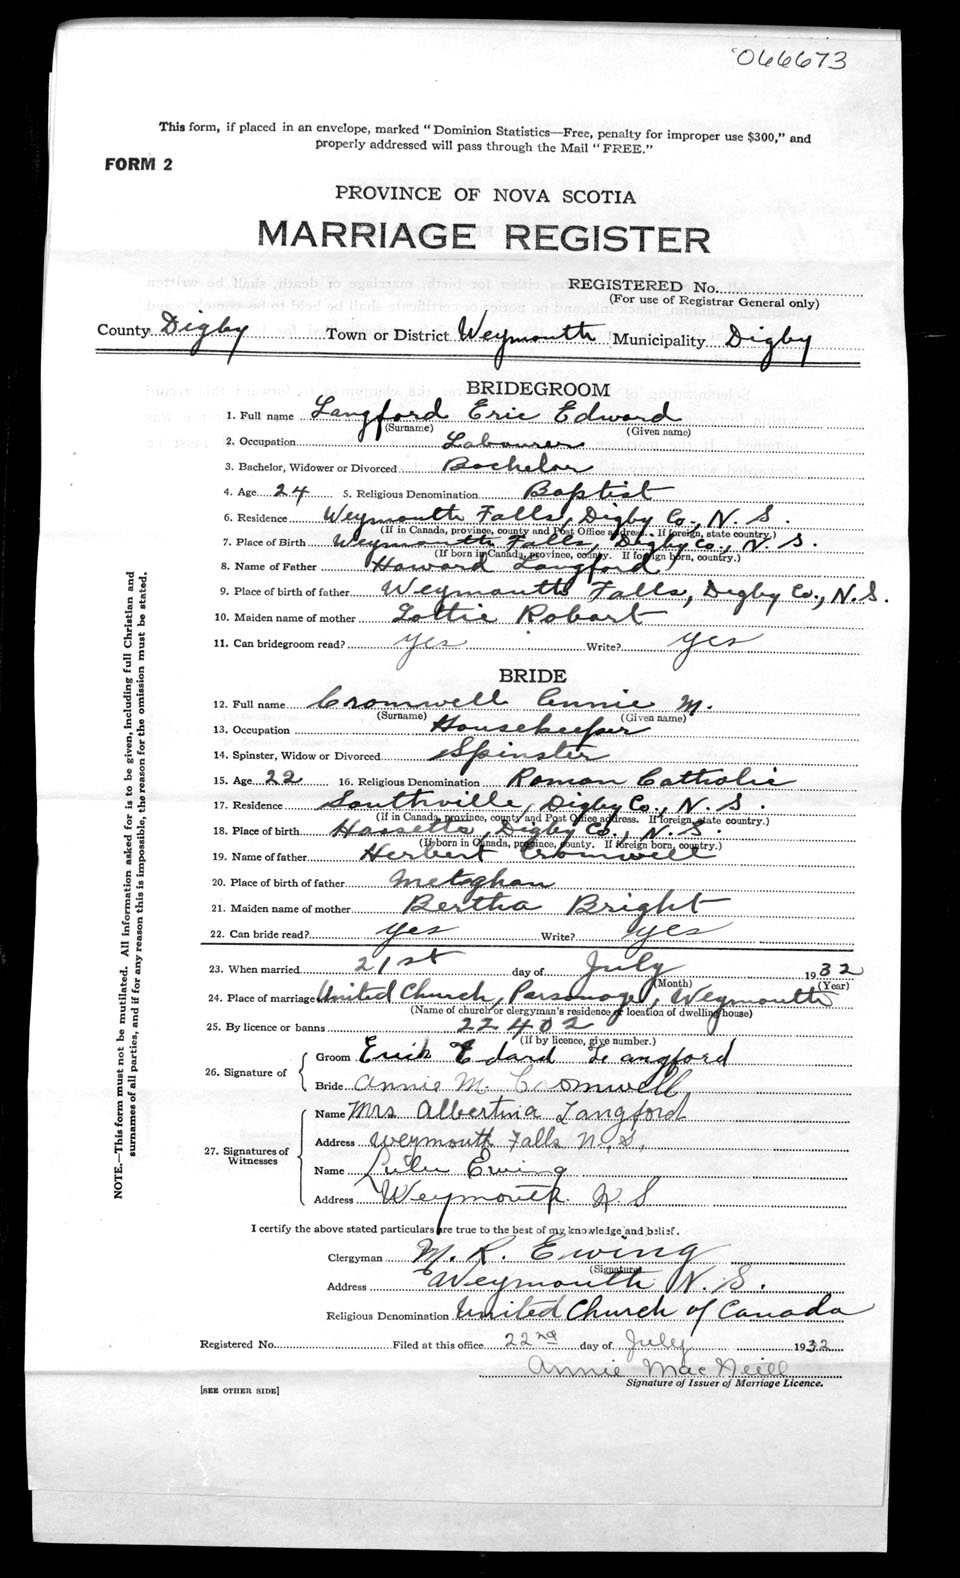 066673
This form, if placed in an envelope, marked "Dominion Statistics—Free, penalty for improper use $300," and
properly addressed will pass through the Mail "FREE."
FORM 2
PROVINCE OF NOVA SCOTIA
MARRIAGE REGISTER
REGISTERED No.
(For use of Registrar General only)
County Digby Town or District Weymouth Municipality Digby
BRIDEGROOM
1. Full name Langford Eric Edward
(Surname) (Given name)
2. Occupation Labourer
3. Bachelor, Widower or Divorced Bachelor
4. Age 24 5. Religious Denomination Baptist
6. Residence Weymouth Falls, Digby Co., N. S.
(If in Canada, province, county and Post Office address. If foreign, state country.)
7. Place of Birth Weymouth Falls, Digby Co., N. S.
(If born in Canada, province, county. If foreign born, country.)
8. Name of Father Howard Langford
9. Place of birth of father Weymouth Falls, Digby Co., N. S.
10. Maiden name of mother Lottie Robart
11. Can bridegroom read? yes Write? yes
BRIDE
12. Full name Cromwell Annie M.
(Surname) (Given name)
13. Occupation Housekeeper
14. Spinster, Widow or Divorced Spinster
15. Age 22 16. Religious Denomination Roman Catholic
17. Residence Southville, Digby Co., N. S.
(If in Canada, province, county and Post Office address. If foreign, state country.)
18. Place of birth Hassetts, Digby Co., N. S.
(If born in Canada, province, county. If foreign born, country.)
19. Name of father Herbert Cromwell
20. Place of birth of father Meteghan
21. Maiden name of mother Bertha Bright
22. Can bride read? yes Write? yes
23. When married 21st day of July 1932
(Month) (Year)
24. Place of marriage United Church, Parsonage, Weymouth
(Name of church or clergyman's residence or location of dwelling house)
25. By licence or banns 22402
(If by licence, give number.)
26. Signature of
Groom Erick Edard Langford
Bride Annie M. Cromwell
27. Signatures of Witnesses
Name Mrs Albertina Langford
Address Weymouth Falls N. S.
Name Ewing
Address Weymouth N S
I certify the above stated particulars are true to the best of my knowledge and belief.
Clergyman M. R. Ewing
(Signature)
Address Weymouth N. S.
Religious Denomination United Church of Canada
Registered No. Filed at this office 22nd day of July 1932
Annie MacNeill
Signature of Issuer of Marriage Licence.
[SEE OTHER SIDE]
NOTE.—This form must not be mutilated. All information asked for is to be given, including full Christian and
surnames of all parties, and if for any reason this is impossible, the reason for the omission must be stated.